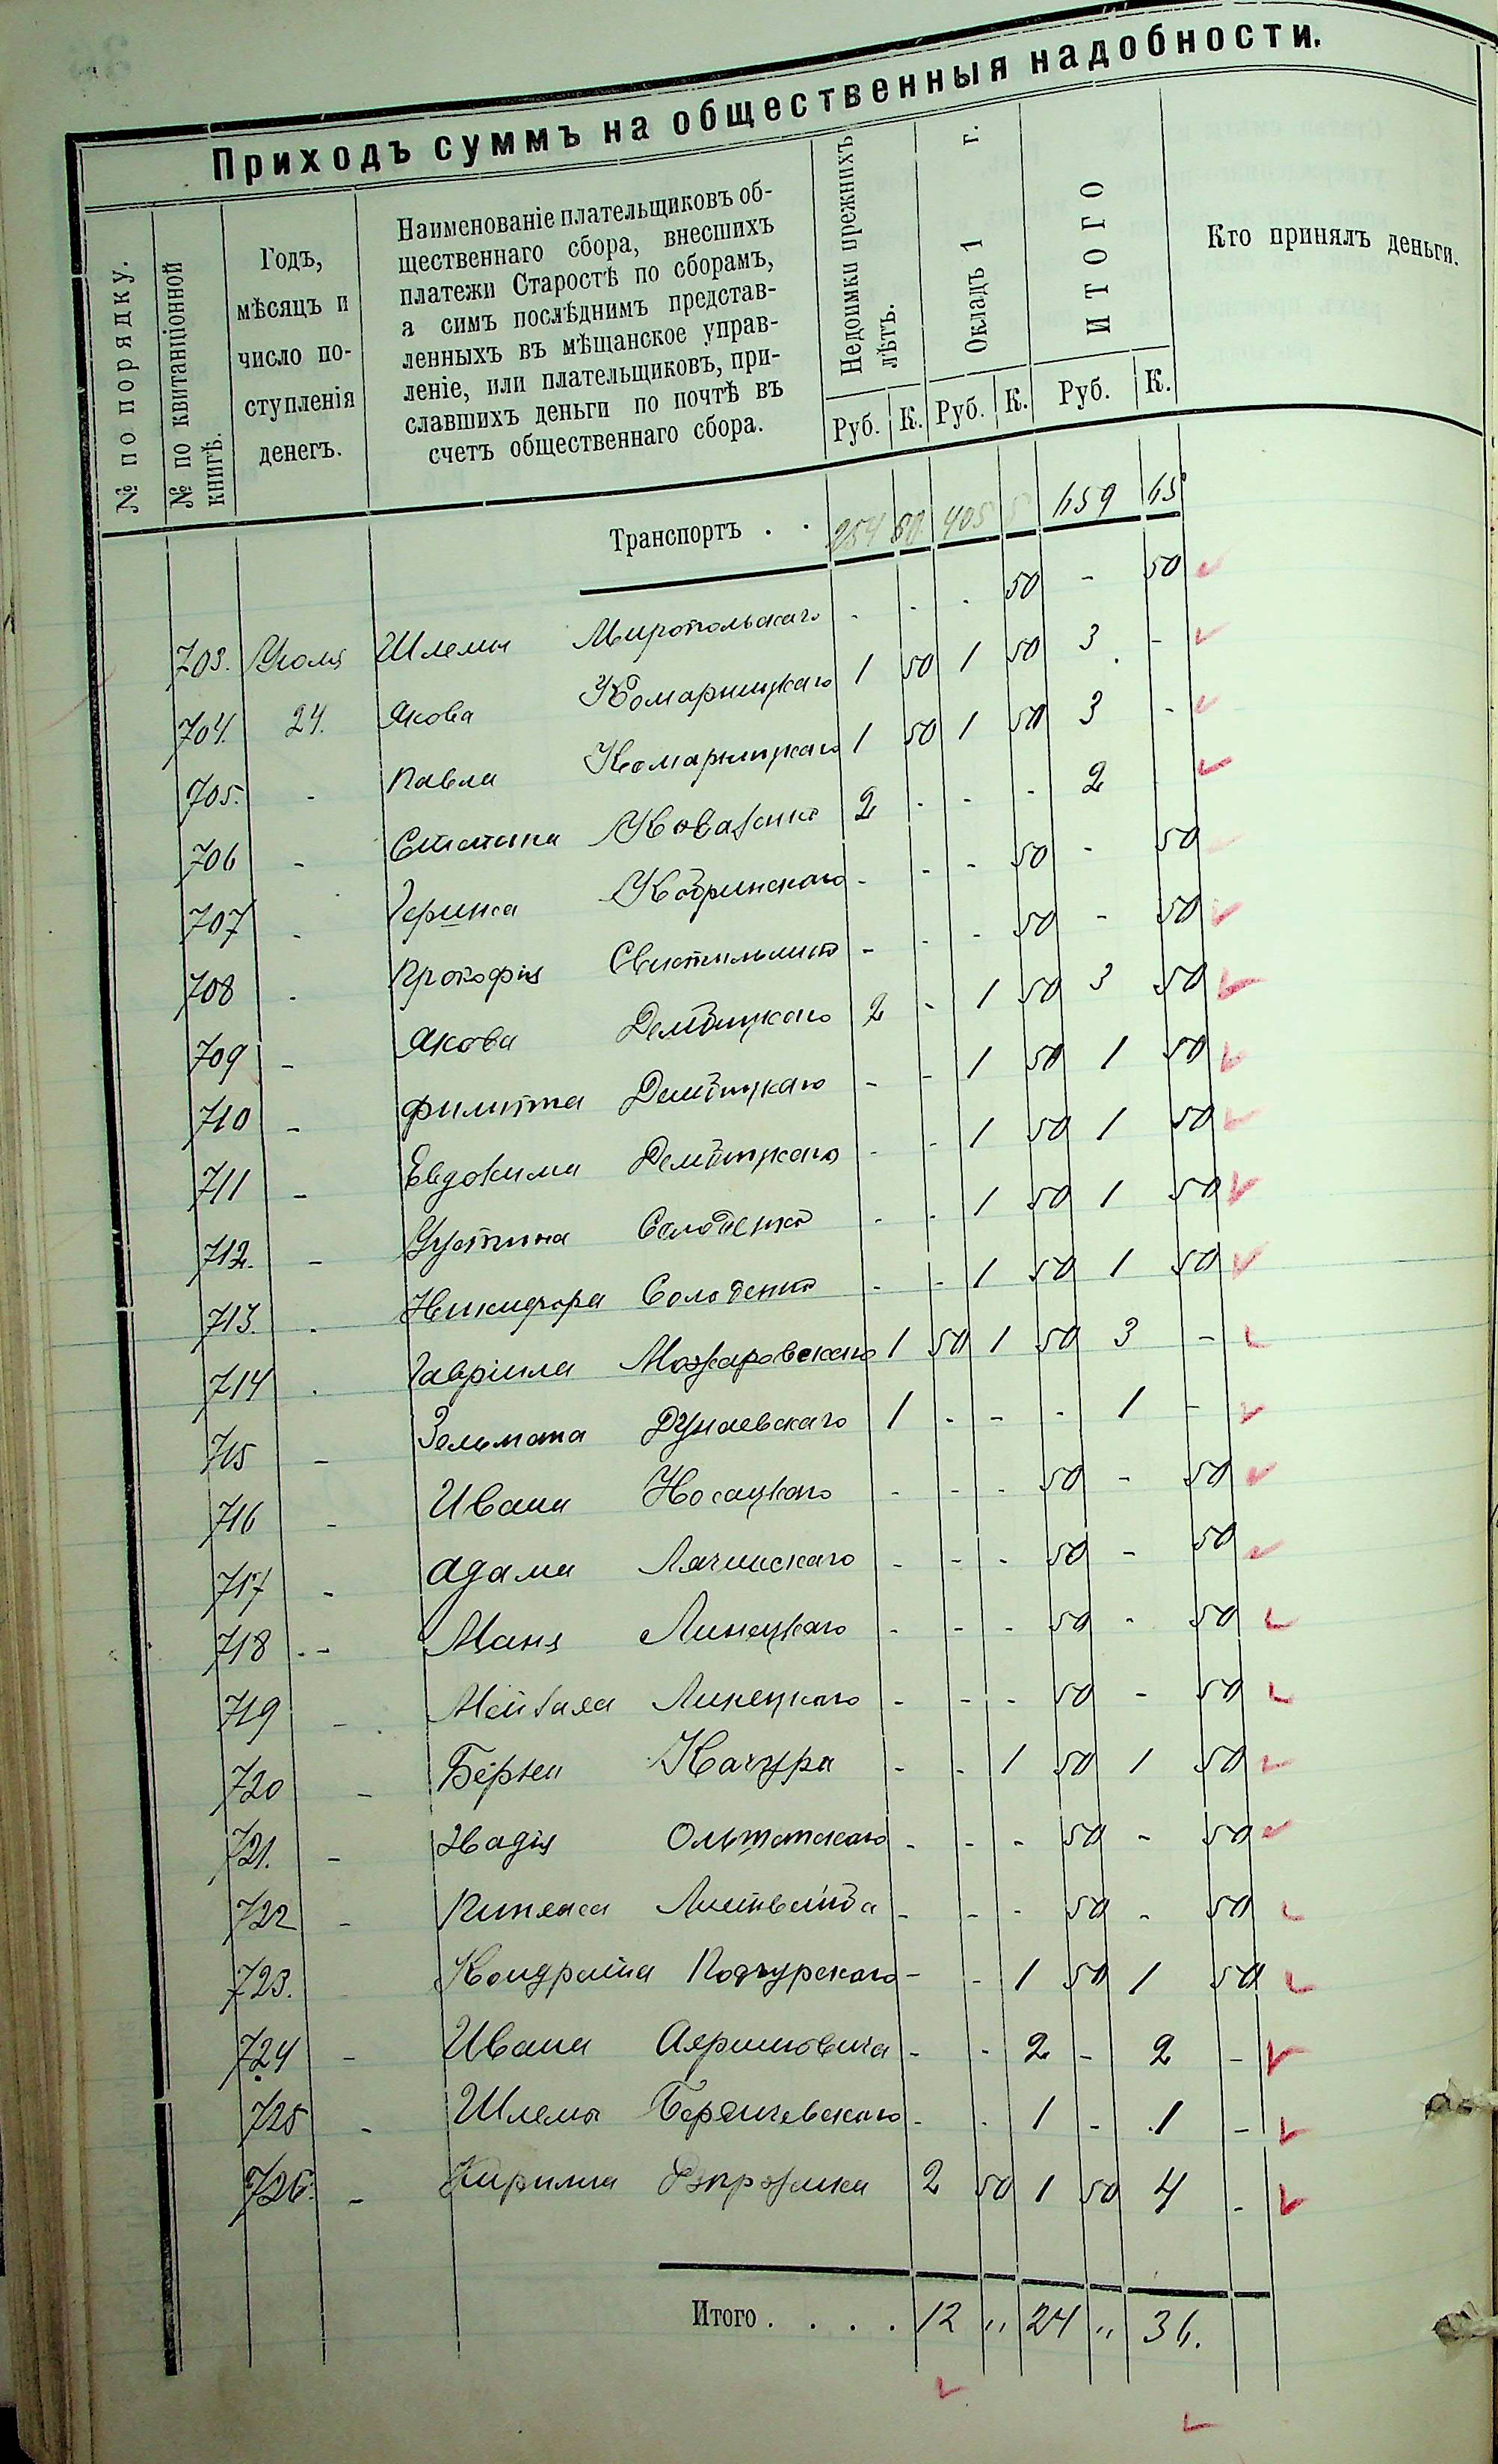 Приходъ суммъ на общественныя надобности.
№ по порядку.
№ по квитанціонной книгѣ.
Годъ,
мѣсяцъ и
число по-
ступленія
денегъ.
Наименованіе плательщиковъ об-
щественнаго сбора, внесшихъ
платежи Старостѣ по сборамъ,
а симъ послѣднимъ представ-
ленныхъ въ мѣщанское управ-
леніе, или плательщиковъ, при-
славшихъ деньги по почтѣ въ
счетъ общественнаго сбора.
Недоимки прежнихъ лѣтъ.
Окладъ 1 г.
ИТОГО
Кто принялъ деньги.
Руб. К. Руб. К. Руб. К.
Транспортъ . . 254 60 405 5 659 65
703. Іюля Шлемы Миропольскаго - - - 50 - 50
704. 24. Якова Комарницкаго 1 50 1 50 3 -
705. - Павла Комарницкаго 1 50 1 50 3 -
706 - Степана 2 - - - 2
707 - Гершка Кобринскаго - - - 50 - 50
708 - Прокофія - - - 50 - 50
709 - Якова Дембицкаго 2 - 1 50 3 50
710 - Филиппа Дембицкаго - - 1 50 1 50
711 - Евдокима Дембицкаго - - 1 50 1 50
712. - Устина Солоденко - - 1 50 1 50
713. - Никифора Солоденко - - 1 50 1 50
714 - Гавріила Можаровскаго 1 50 1 50 3 -
715 - Зельмана Дунаевскаго 1 - - - 1 -
716 - Ивана Носацкаго - - - 50 - 50
717 - Адама Лячинскаго - - - 50 - 50
718 - - Линецкаго - - - 50 - 50
719 - Линецкаго - - - 50 - 50
720 - Качура - - 1 50 1 50
721. - - - - 50 - 50
722 - Пинхаса - - - 50 - 50
723. Кондрата Подгурскаго - - 1 50 1 50
724 - Ивана - - 2 - 2 -
725 - Шлемы Бердичевскаго - - 1 - 1 -
726. - Кирилла 2 50 1 50 4 -
Итого . . . . 12 " 24 " 36.